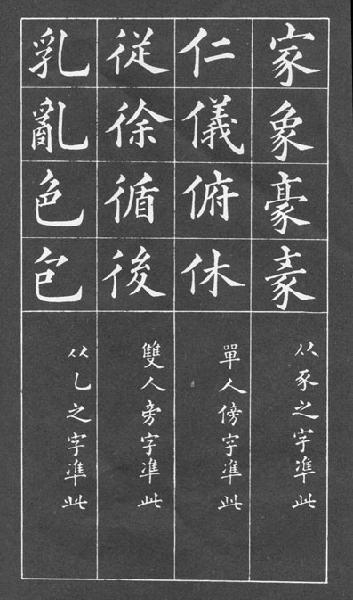 家象豪
从豕之字準此
仁儀俯休
單人傍字準此
從徐循後
雙人旁字準此
乳亂色包
从乚之字準此